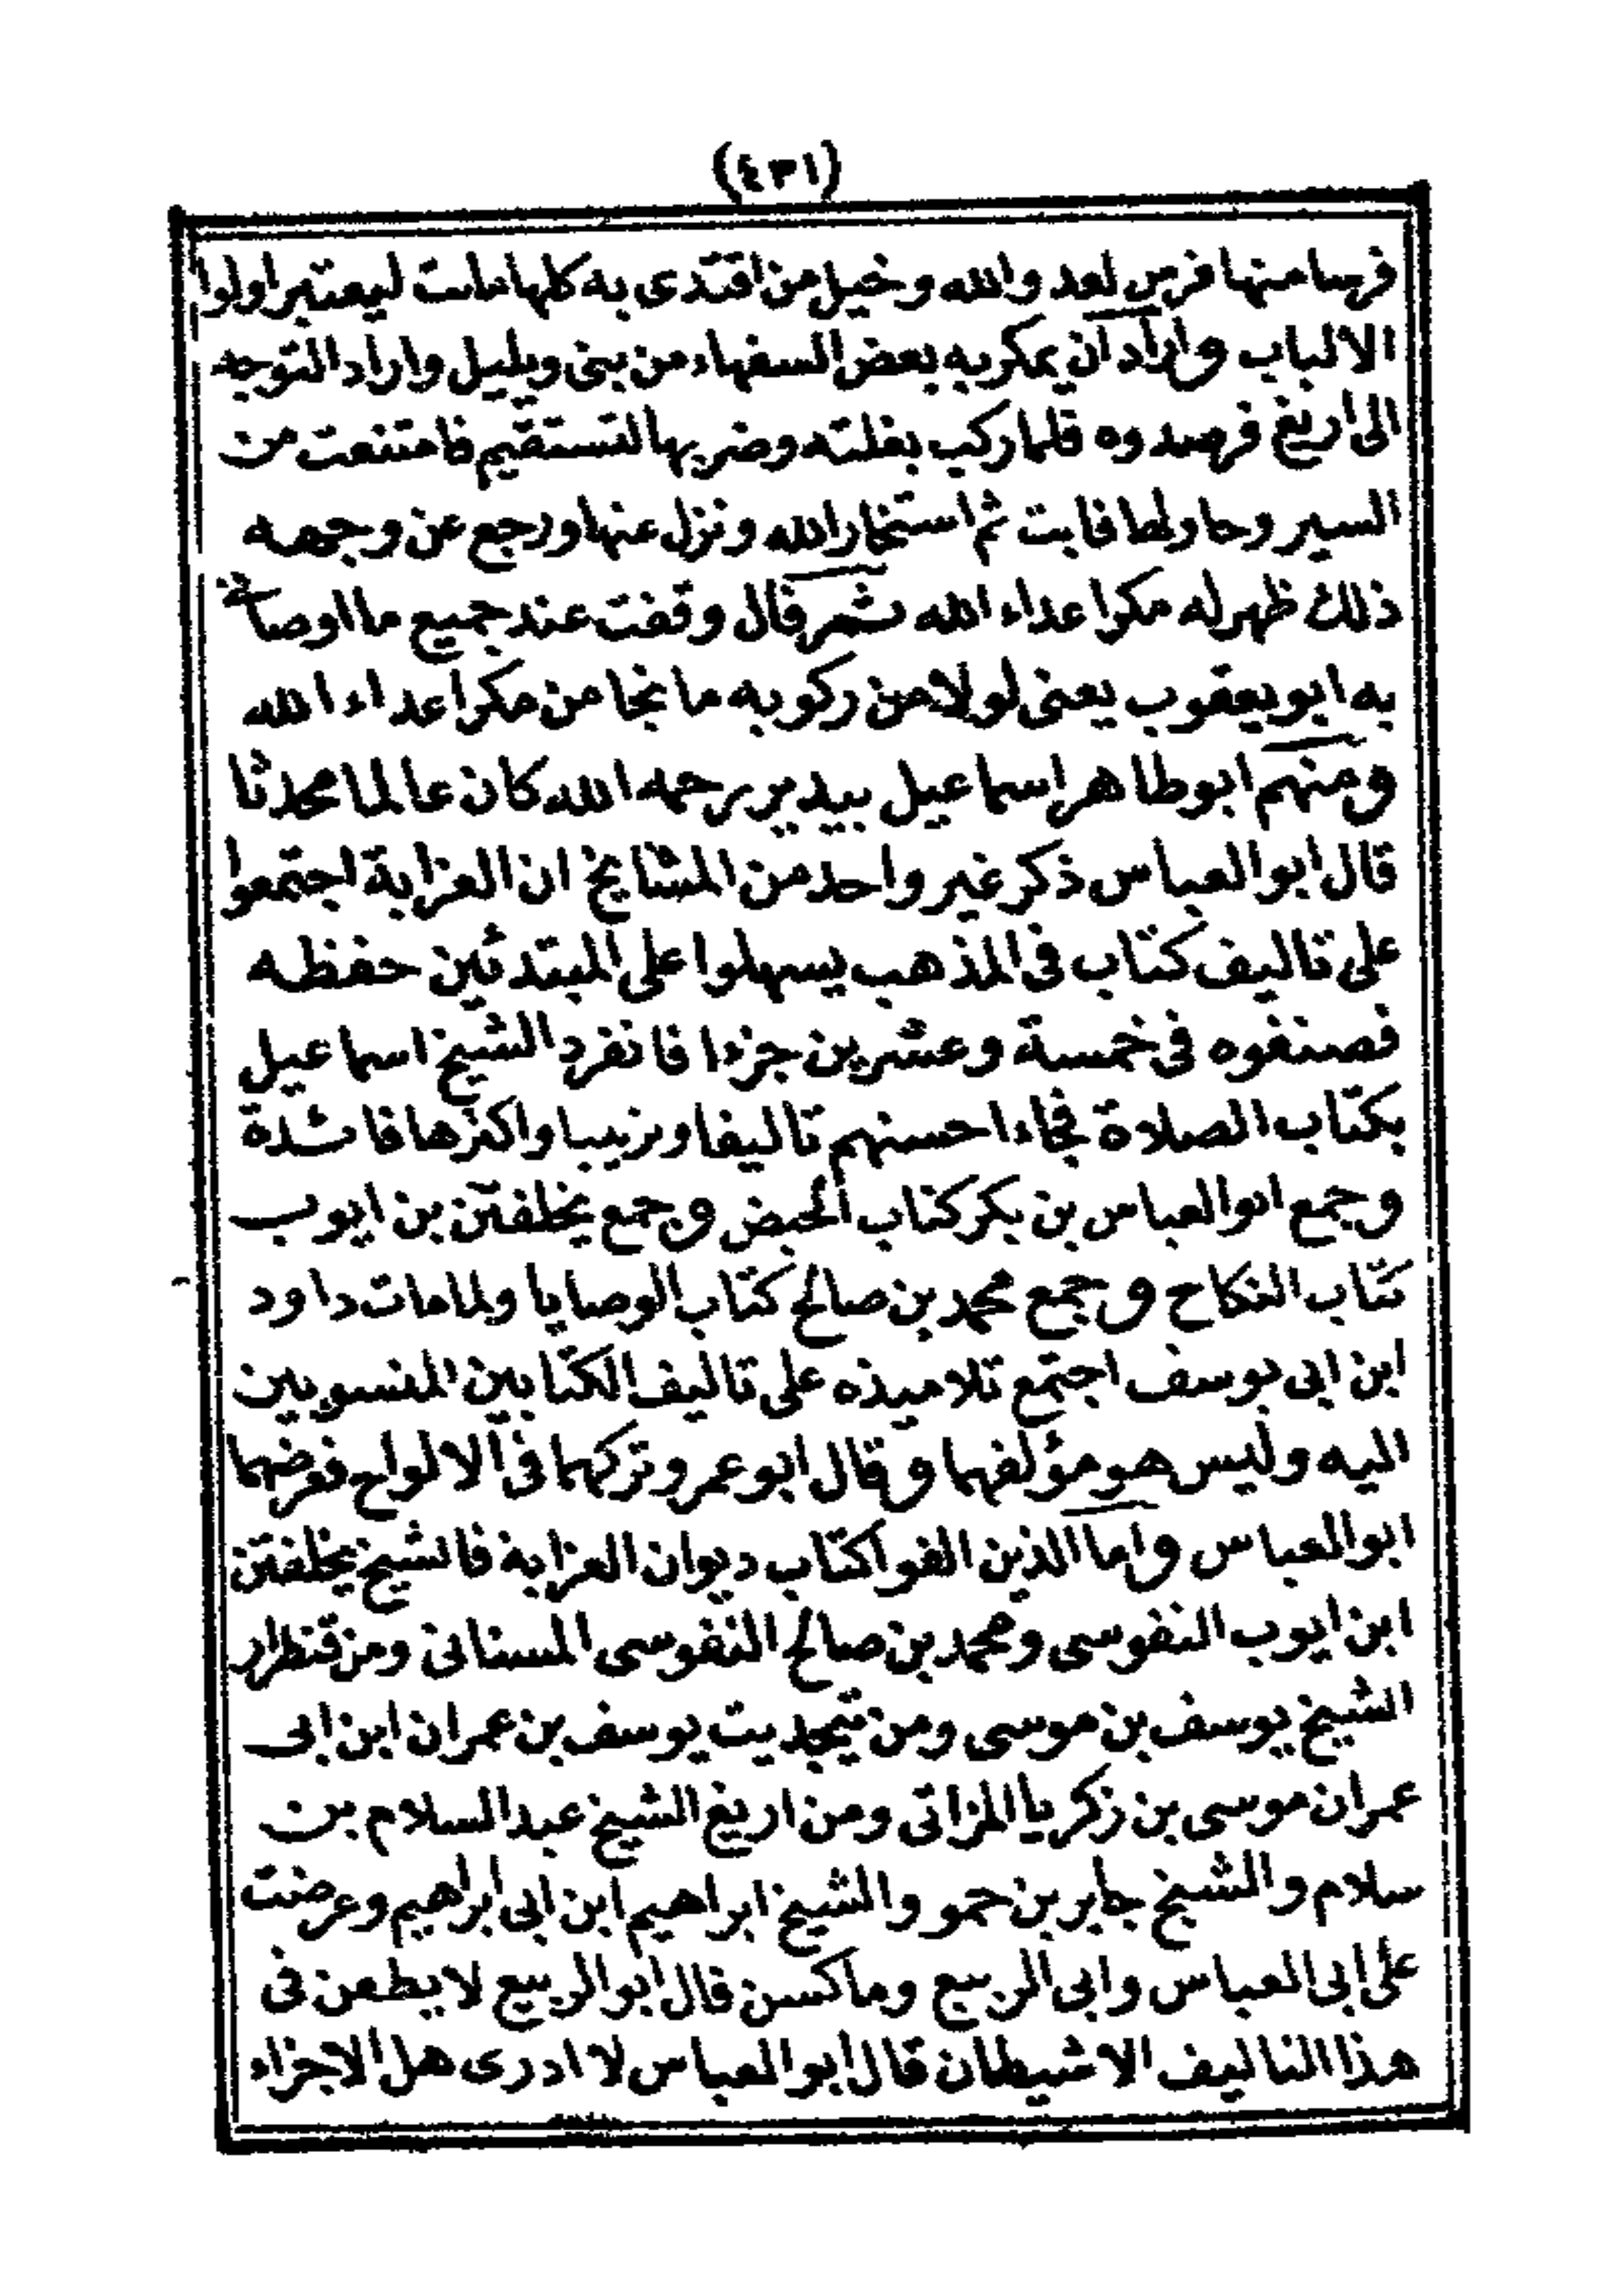 (٤٣١)
فرسا منها فرس لعد والله وخيل من اقتدى به كلها ماتت ليعتبر اولوا
الالباب واراد ان يمكر به بعض السفهاء من بنى ويليل واراد التوجه
الى اريغ فرصدوه فلما ركب بغلته وضربها لتستقيم فامتنعت من
السير وحاولها فابت ثم استخار الله ونزل عنها ورجع عن وجهه
ذلك ظهر له مكر اعداء الله ثمر قال وقفت عند جميع ما اوصانى
به ابو يعقوب يعنى لولا من ركوبه ما نجا من مكر اعداء الله
ومنهم ابو طاهر اسماعيل بيدير رحمه الله كان عالما محدثا
قال ابو العباس ذكر غير واحد من المشايخ ان العزابة اجتمعوا
على تاليف كتاب فى المذهب يسهلوا على المبتدئين حفظه
فصنفوه فى خمسة وعشرين جزءا فانفرد الشيخ اسماعيل
بكتاب الصلاة فجاء احسنهم تاليفا وترتيبا واكثرها فائدة
وجمع ابو العباس بن بكر كتاب الحيض وجمع يخلفتن بن ايوب
كتاب النكاح وجمع محمد بن صالح كتاب الوصايا ولما مات داود
ابن ابى يوسف اجتمع تلاميذه على تاليف الكتابين المنسوبين
اليه وليس هو مؤلفهما وقال ابو عمرو تركهما فى الالواح فعرضهما
ابو العباس واما الذين الفوا كتاب ديوان العزابة فالشيخ يخلفتن
ابن ايوب النفوسى ومحمد بن صالح النفوسى المسنانى ومن قنطرار
الشيخ يوسف بن موسى ومن تيجديت يوسف بن عمران ابن ابى
عمران موسى بن زكريا المزاتى ومن اريغ الشيخ عبد السلام بن
سلام والشيخ جابر بن حمو والشيخ ابراهيم ابن ابى ابراهيم وعرضت
على ابى العباس وابى الربيع وماكسن قال ابو الربيع لا يطعن فى
هذا التاليف الا شيطان قال ابو العباس لا ادرى هل الاجزاء